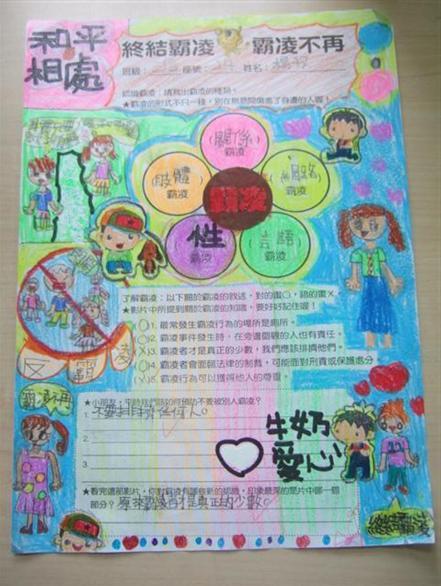 和平
相處
終結霸凌 霸凌不再
班級: 座號:24 姓名:楊
認識霸凌:請寫出霸凌的種類。
★霸凌的形式不只一種,別在無意間傷害了身邊的人喔!
(關係)
霸凌
(肢體)
霸凌
(網路)
霸凌
霸凌
性
霸凌
(言語)
霸凌
反霸凌
了解霸凌:以下關於霸凌的敘述,對的畫○,錯的畫×。
★影片中所提到關於霸凌的知識,要好好記住喔!
(○)1.最常發生霸凌行為的場所是廁所。
(○)2.霸凌事件發生時,在旁圍觀的人也有責任。
(X)3.霸凌者才是真正的少數,我們應該排擠他們。
(○)4.霸凌者會面臨法律的制裁,可能面對刑責或保護處分
(X)5.霸凌行為可以獲得他人的尊重。
霸凌不再
★小朋友,平時我們該如何預防不要被別人霸凌?
1. 不要排擠任何人。
2.
3.
牛奶
愛心
★看完這部影片,你對霸凌有哪些新的認識,印象最深的是片中哪一個
部分? 原來霸凌者才是真正的少數。